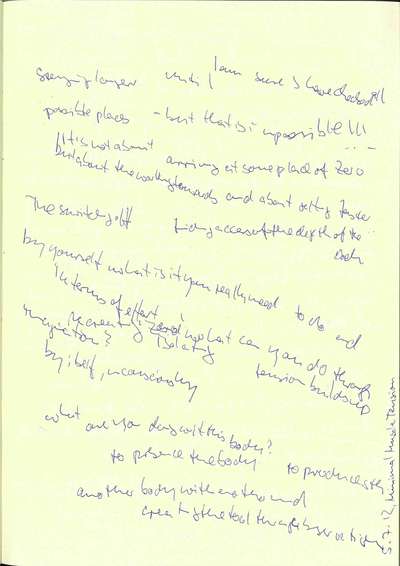 I am sure I have checked all
staying longer until
possible places - but that is impossible!!!
It is not about arriving at some place of Zero
but about the working towards and about getting faster
The switching off finding access to the depth of the
body
by yourself what is it you really need to do and
in terms of effort
recreating Zero what can you do through
imagination?
tension builds up
by itself, unconsciously
what are you doing with this body?
to presence the body to produce
another body with another mind
creating the tool through observation
5.7.12, Minimal Muscle Tension